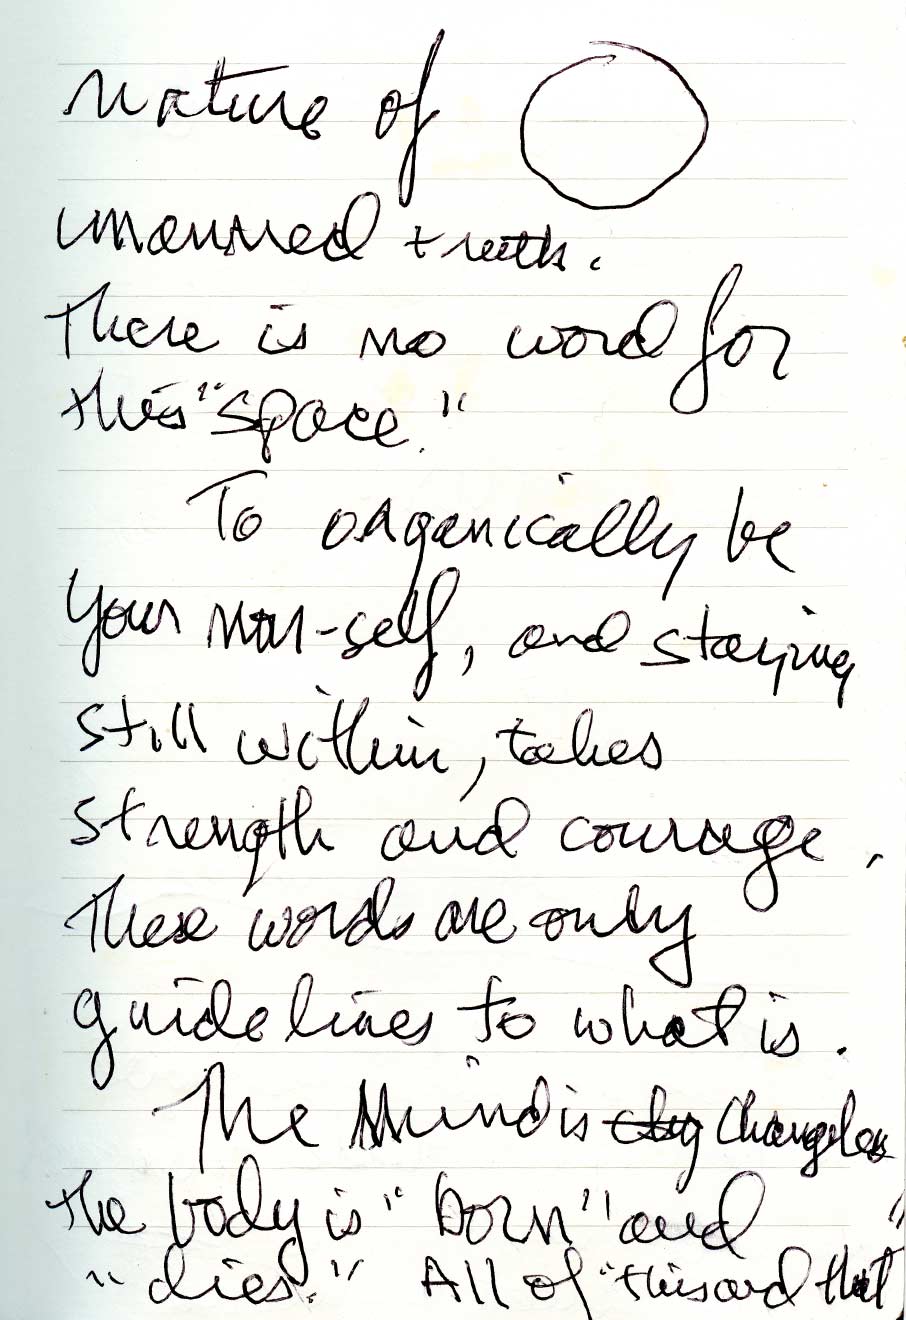 nature of
unmanned truth.
There is no word for
this "space."
To organically be
your non-self, and staying
still within, takes
strength and courage.
These words are only
guidelines to what is.
The Mind is Changeless
the body is "born" and
"dies." All of "this and that"